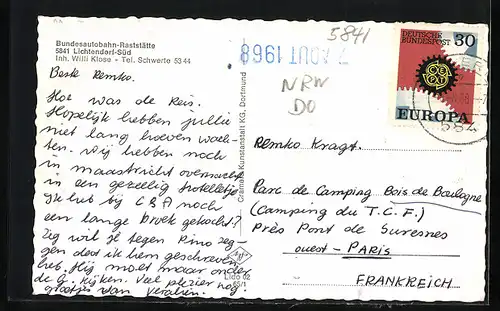 Bundesautobahn-Raststätte
5841 Lichtendorf-Süd
Inh. Willi Klose - Tel. Schwerte 53 44
Beste Remko.
Hoe was de Reis.
Hopelijk hebben jullie
niet lang hoeven wach-
ten. Wij hebben nog
in maastricht overnacht
in een gezellig hotelletje
Ik heb bij C&A nog
een lange broek gekocht?
Zeg wil je tegen Rino zeg-
gen dat ik hem geschreven
heb. Hij moet maar onder
de G. kijken. Veel plezier nog.
groetjes van
Cramers Kunstanstalt KG, Dortmund
Lido 02
65/1
7 AOUT 1968
5841
NRW
DO
DEUTSCHE
BUNDESPOST
30
CEPT
EUROPA
584
Remko Kragt.
Parc de Camping Bois de Boulogne
(Camping du T.C.F.)
Près Pont de Suresnes
ouest - PARIS
FRANKREICH